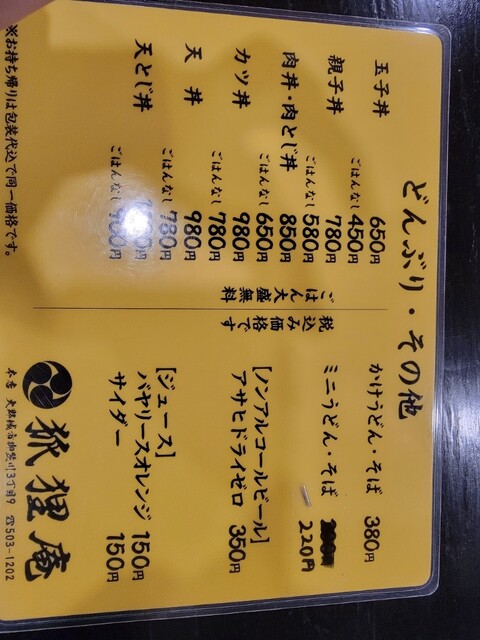 どんぶり・その他
玉子丼 650円
ごはんなし 450円
親子丼 780円
ごはんなし 580円
肉丼・肉とじ丼 850円
ごはんなし 650円
カツ丼 980円
ごはんなし 780円
天丼 980円
ごはんなし 780円
天とじ丼
ごはんなし 900円
※お持ち帰りは包装代込で同一価格です。
ごはん大盛無料
税込み価格です
かけうどん・そば 380円
ミニうどん・そば 220円
[ノンアルコールビール]
アサヒドライゼロ 350円
[ジュース]
バヤリースオレンジ 150円
サイダー 150円
狐狸庵
本店 大野城市御笠川3丁目9 ☎503-1202